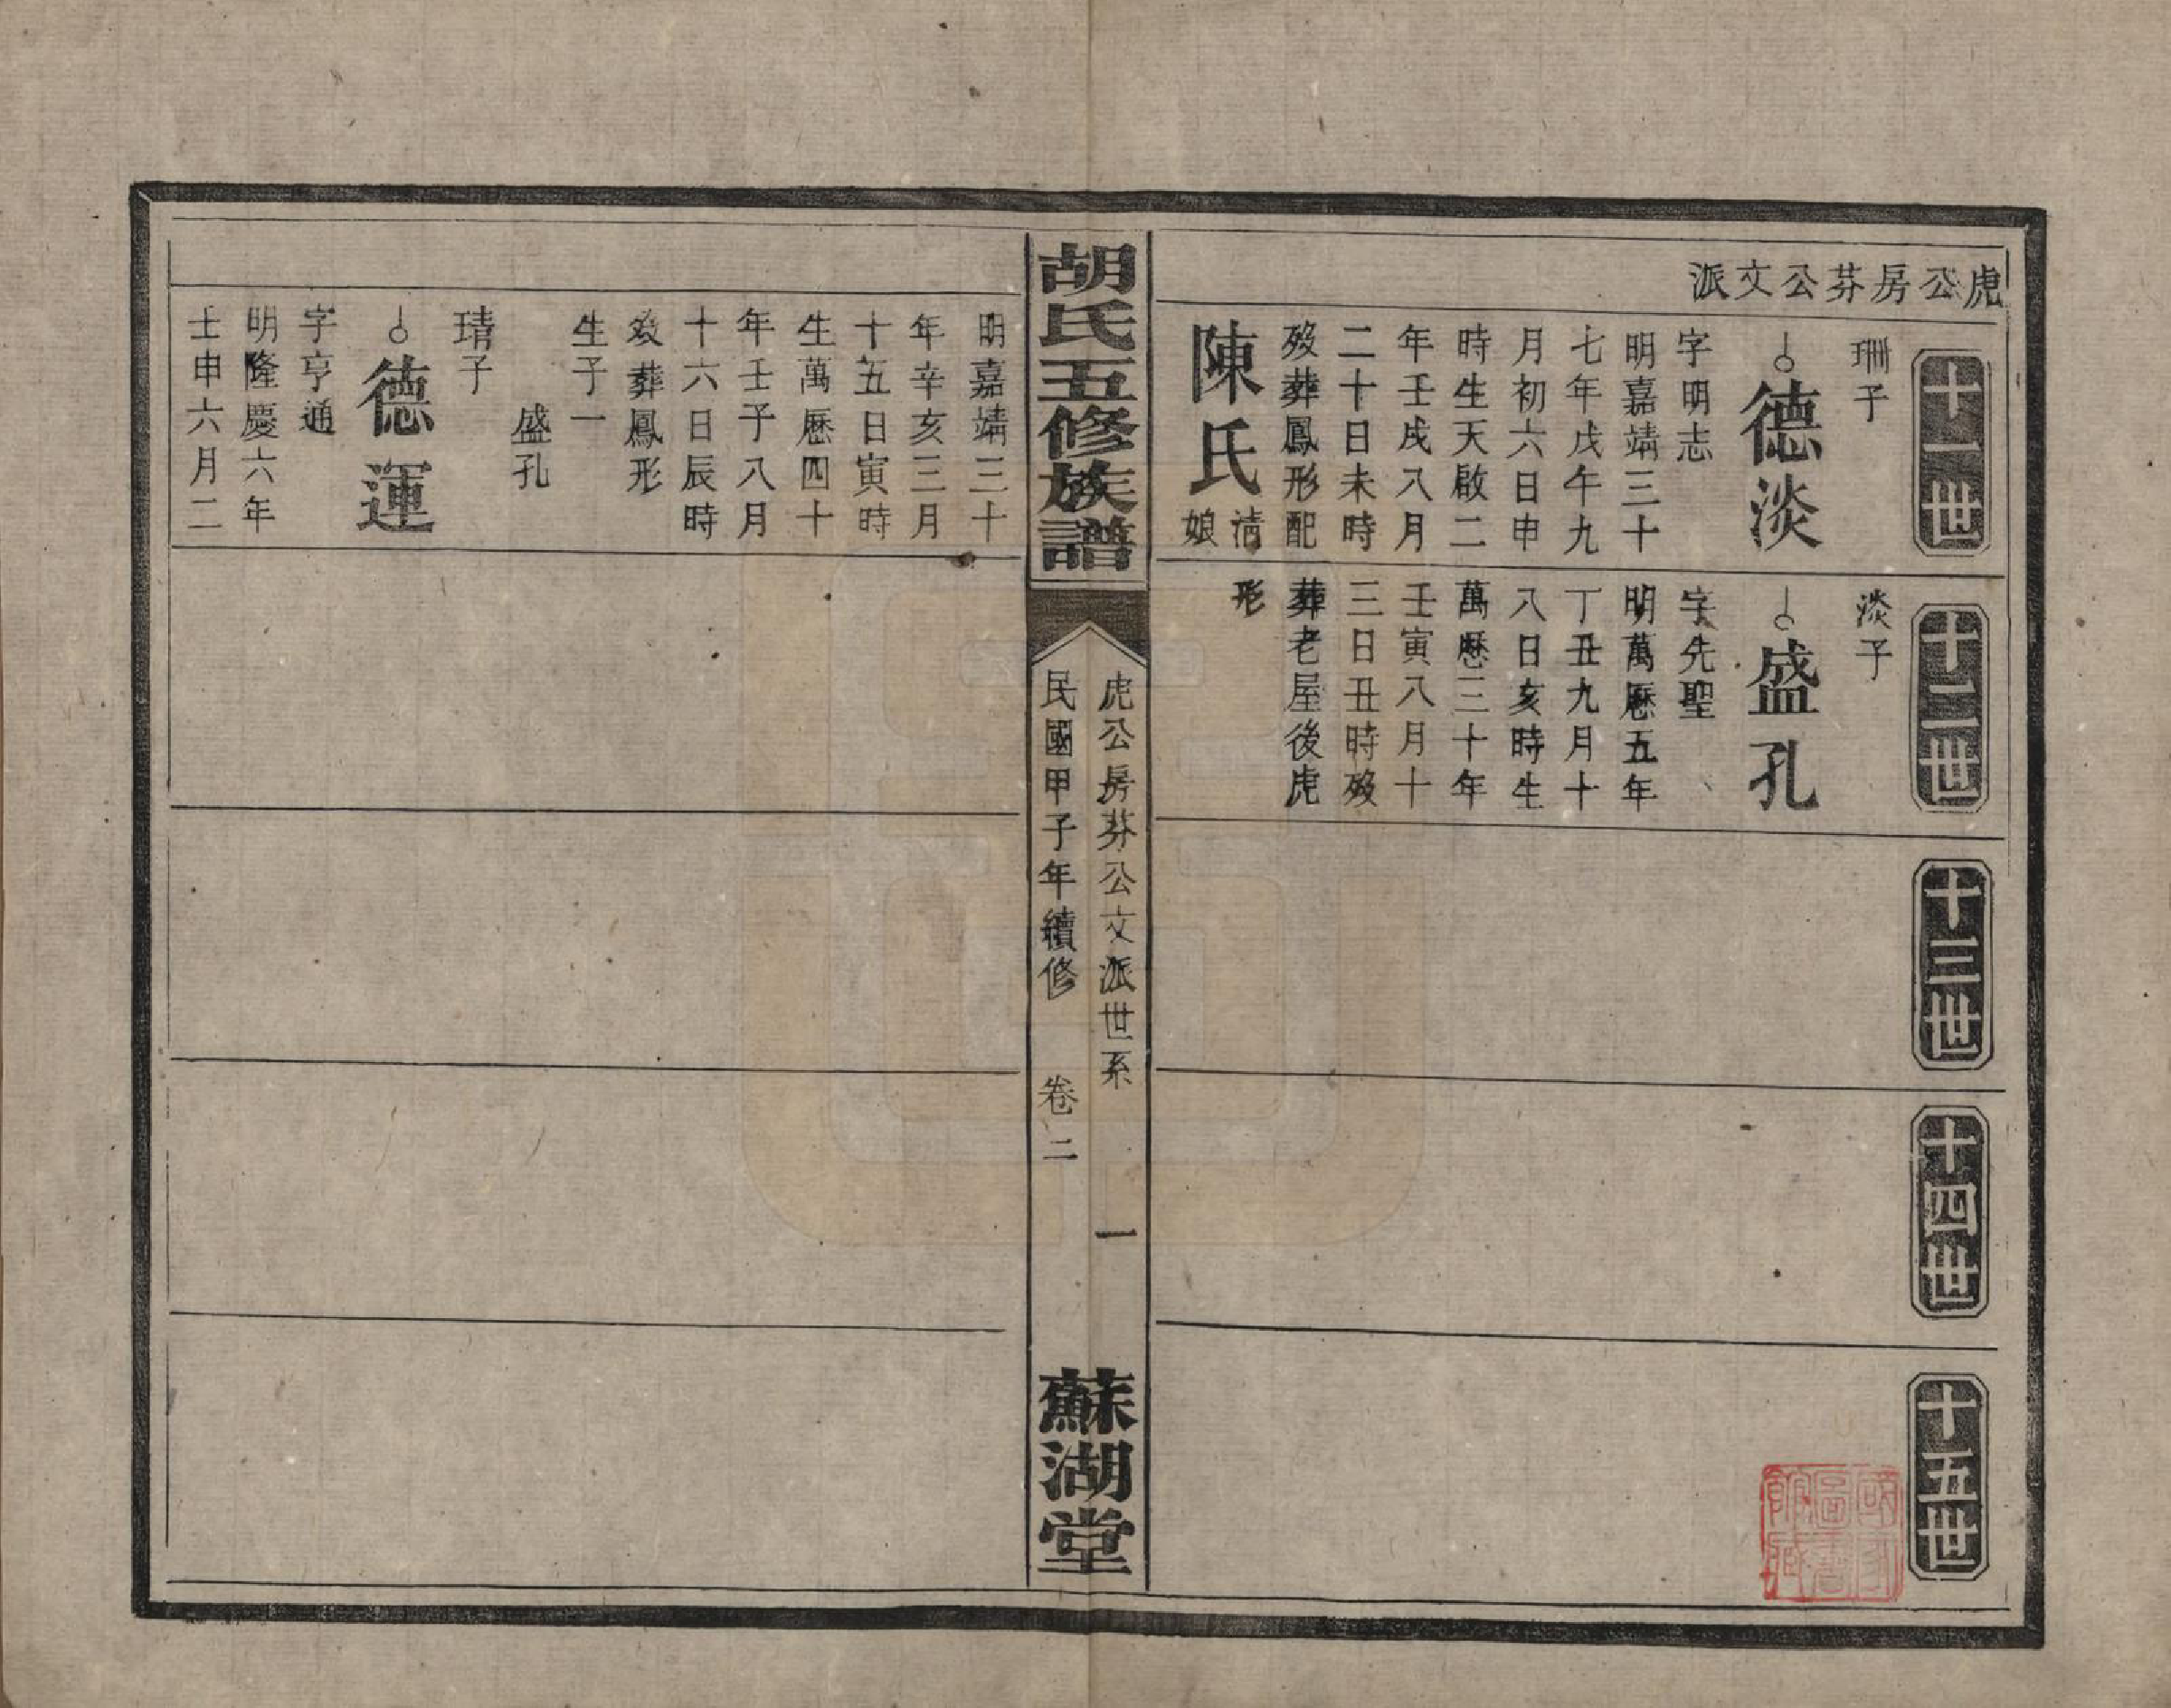 虎公房芬公文派
十一世
珊子
德淡
字明志
明嘉靖三十
七年戊午九
月初六日申
時生天啟二
年壬戌八月
二十日未時
歿葬鳳形配
陳氏清娘
十二世
淡子
盛孔
字先聖
明萬歷五年
丁丑九月十
八日亥時生
萬歷三十年
壬寅八月十
三日丑時歿
葬老屋後虎
形
十三世
十四世
十五世
國家圖書館藏
胡氏五修族譜
虎公房芬公文派世系
一
民國甲子年續修
卷二
蘇湖堂
明嘉靖三十
年辛亥三月
十五日寅時
生萬歷四十
年壬子八月
十六日辰時
歿葬鳳形
生子一
盛孔
琦子
德運
字亨通
明隆慶六年
壬申六月二